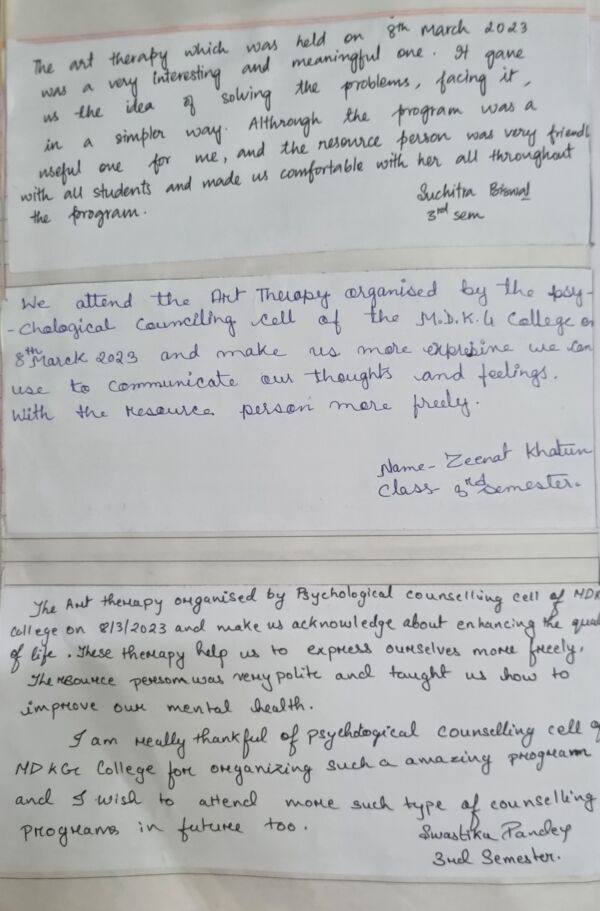 The art therapy which was held on 8th March 2023
was a very interesting and meaningful one. It gave
us the idea of solving the problems, facing it,
in a simpler way. Althrough the program was a
useful one for me, and the resource person was very friendl
with all students and made us comfortable with her all throughout
the program.
Suchitra Biswal
3rd sem
We attend the Art Therapy organised by the psy-
-chological Counciling cell of the M.D.K.G College on
8th March 2023 and make us more expresine we can
use to communicate our thoughts and feelings.
With the resource person more freely.
Name- Zeenat Khatun
Class 3rd Semester.
The Art therapy organised by Psychological counselling cell of MDK
College on 8/3/2023 and make us acknowledge about enhancing the qual
of life. These therapy help us to express ourselves more freely.
The rsource person was very polite and taught us how to
improve our mental health.
I am really thankful of psychological counselling cell of
MDKG College for organizing such a amazing program
and I wish to attend more such type of counselling
programs in future too.
Swastika Pandey
3rd Semester.